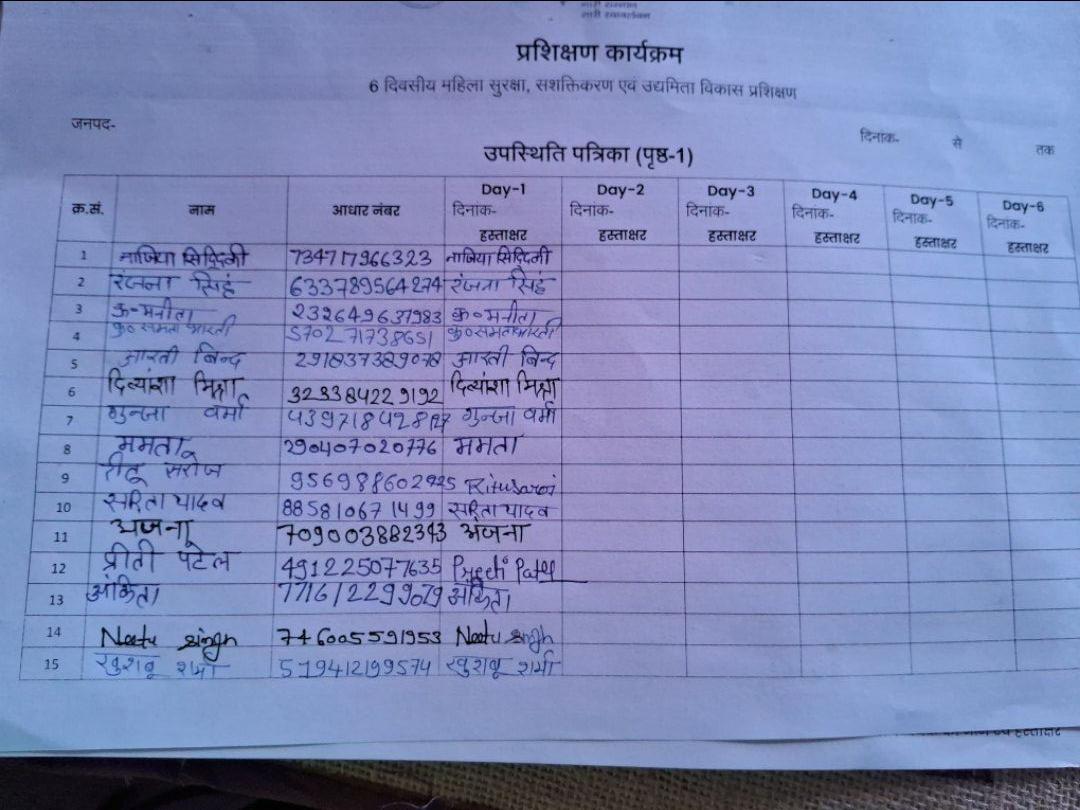 नारी स्वावलंबन
प्रशिक्षण कार्यक्रम
6 दिवसीय महिला सुरक्षा, सशक्तिकरण एवं उद्यमिता विकास प्रशिक्षण
जनपद- दिनांक- से तक
उपस्थिति पत्रिका (पृष्ठ-1)
क्र.सं. नाम आधार नंबर Day-1 दिनांक- हस्ताक्षर Day-2 दिनांक- हस्ताक्षर Day-3 दिनांक- हस्ताक्षर Day-4 दिनांक- हस्ताक्षर Day-5 दिनांक- हस्ताक्षर Day-6 दिनांक- हस्ताक्षर
1 नाजिया सिद्दिकी 734717966323 नाजिया सिद्दिकी
2 रंजना सिहं 633789564274 रंजना सिहं
3 कु॰मनीता 232649637983 कु॰मनीता
4 कु॰समता भारती 570271738651 कु॰समता भारती
5 आरती बिन्द 291837389078 आरती बिन्द
6 दिव्यांशा मिश्रा 323384229192 दिव्यांशा मिश्रा
7 गुन्जा वर्मा गुन्जा वर्मा
8 ममता 290407020776 ममता
9 रीतू सरोज Ritu saroj
10 सरिता यादव 885810671499 सरिता यादव
11 अंजना 709003882343 अंजना
12 प्रीती पटेल 491225077635 Preeti Patel
13 अंकिता 771612299079 अंकिता
14 Neetu singh 746005591953 Neetu singh
15 खुशबू शर्मा 519412199574 खुशबू शर्मा
हस्ताक्षर